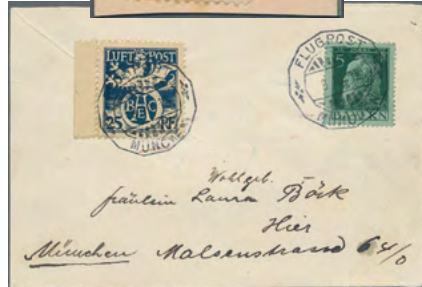 LUFT POST
BAEC
25 PF.
MÜNCHEN
FLUGPOST
5
BAYERN
Wohlgeb.
fräulein Laura Böck
Hier
München Malsenstrasse 64/0